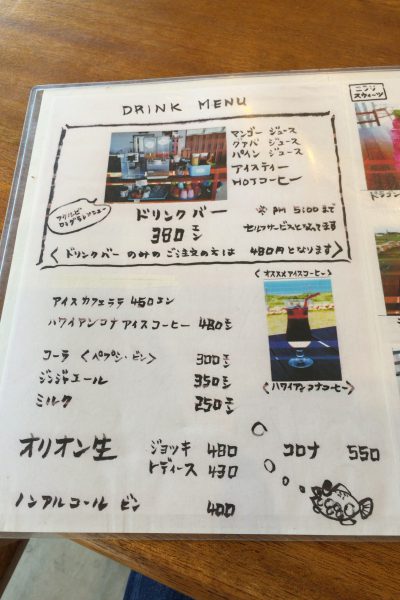 DRINK MENU
マンゴー ジュース
グァバ ジュース
パイン ジュース
アイスティー
HOTコーヒー
ドリンクバー
380エン
※ PM 5:00まで
セルフサービスとなってます
〈ドリンクバー のみの ご注文の方は 480円となります〉
アイスカフェラテ 450エン
ハワイアンコナ アイスコーヒー 480エン
〈オススメアイスコーヒー〉
〈ハワイアンコナコーヒー〉
コーラ 〈ペプシ・ビン〉 300エン
ジンジャエール 350エン
ミルク 250エン
オリオン生 ジョッキ 480
レディース 430
コロナ 550
ノンアルコール ビン 400
スウィーツ
ドラゴン